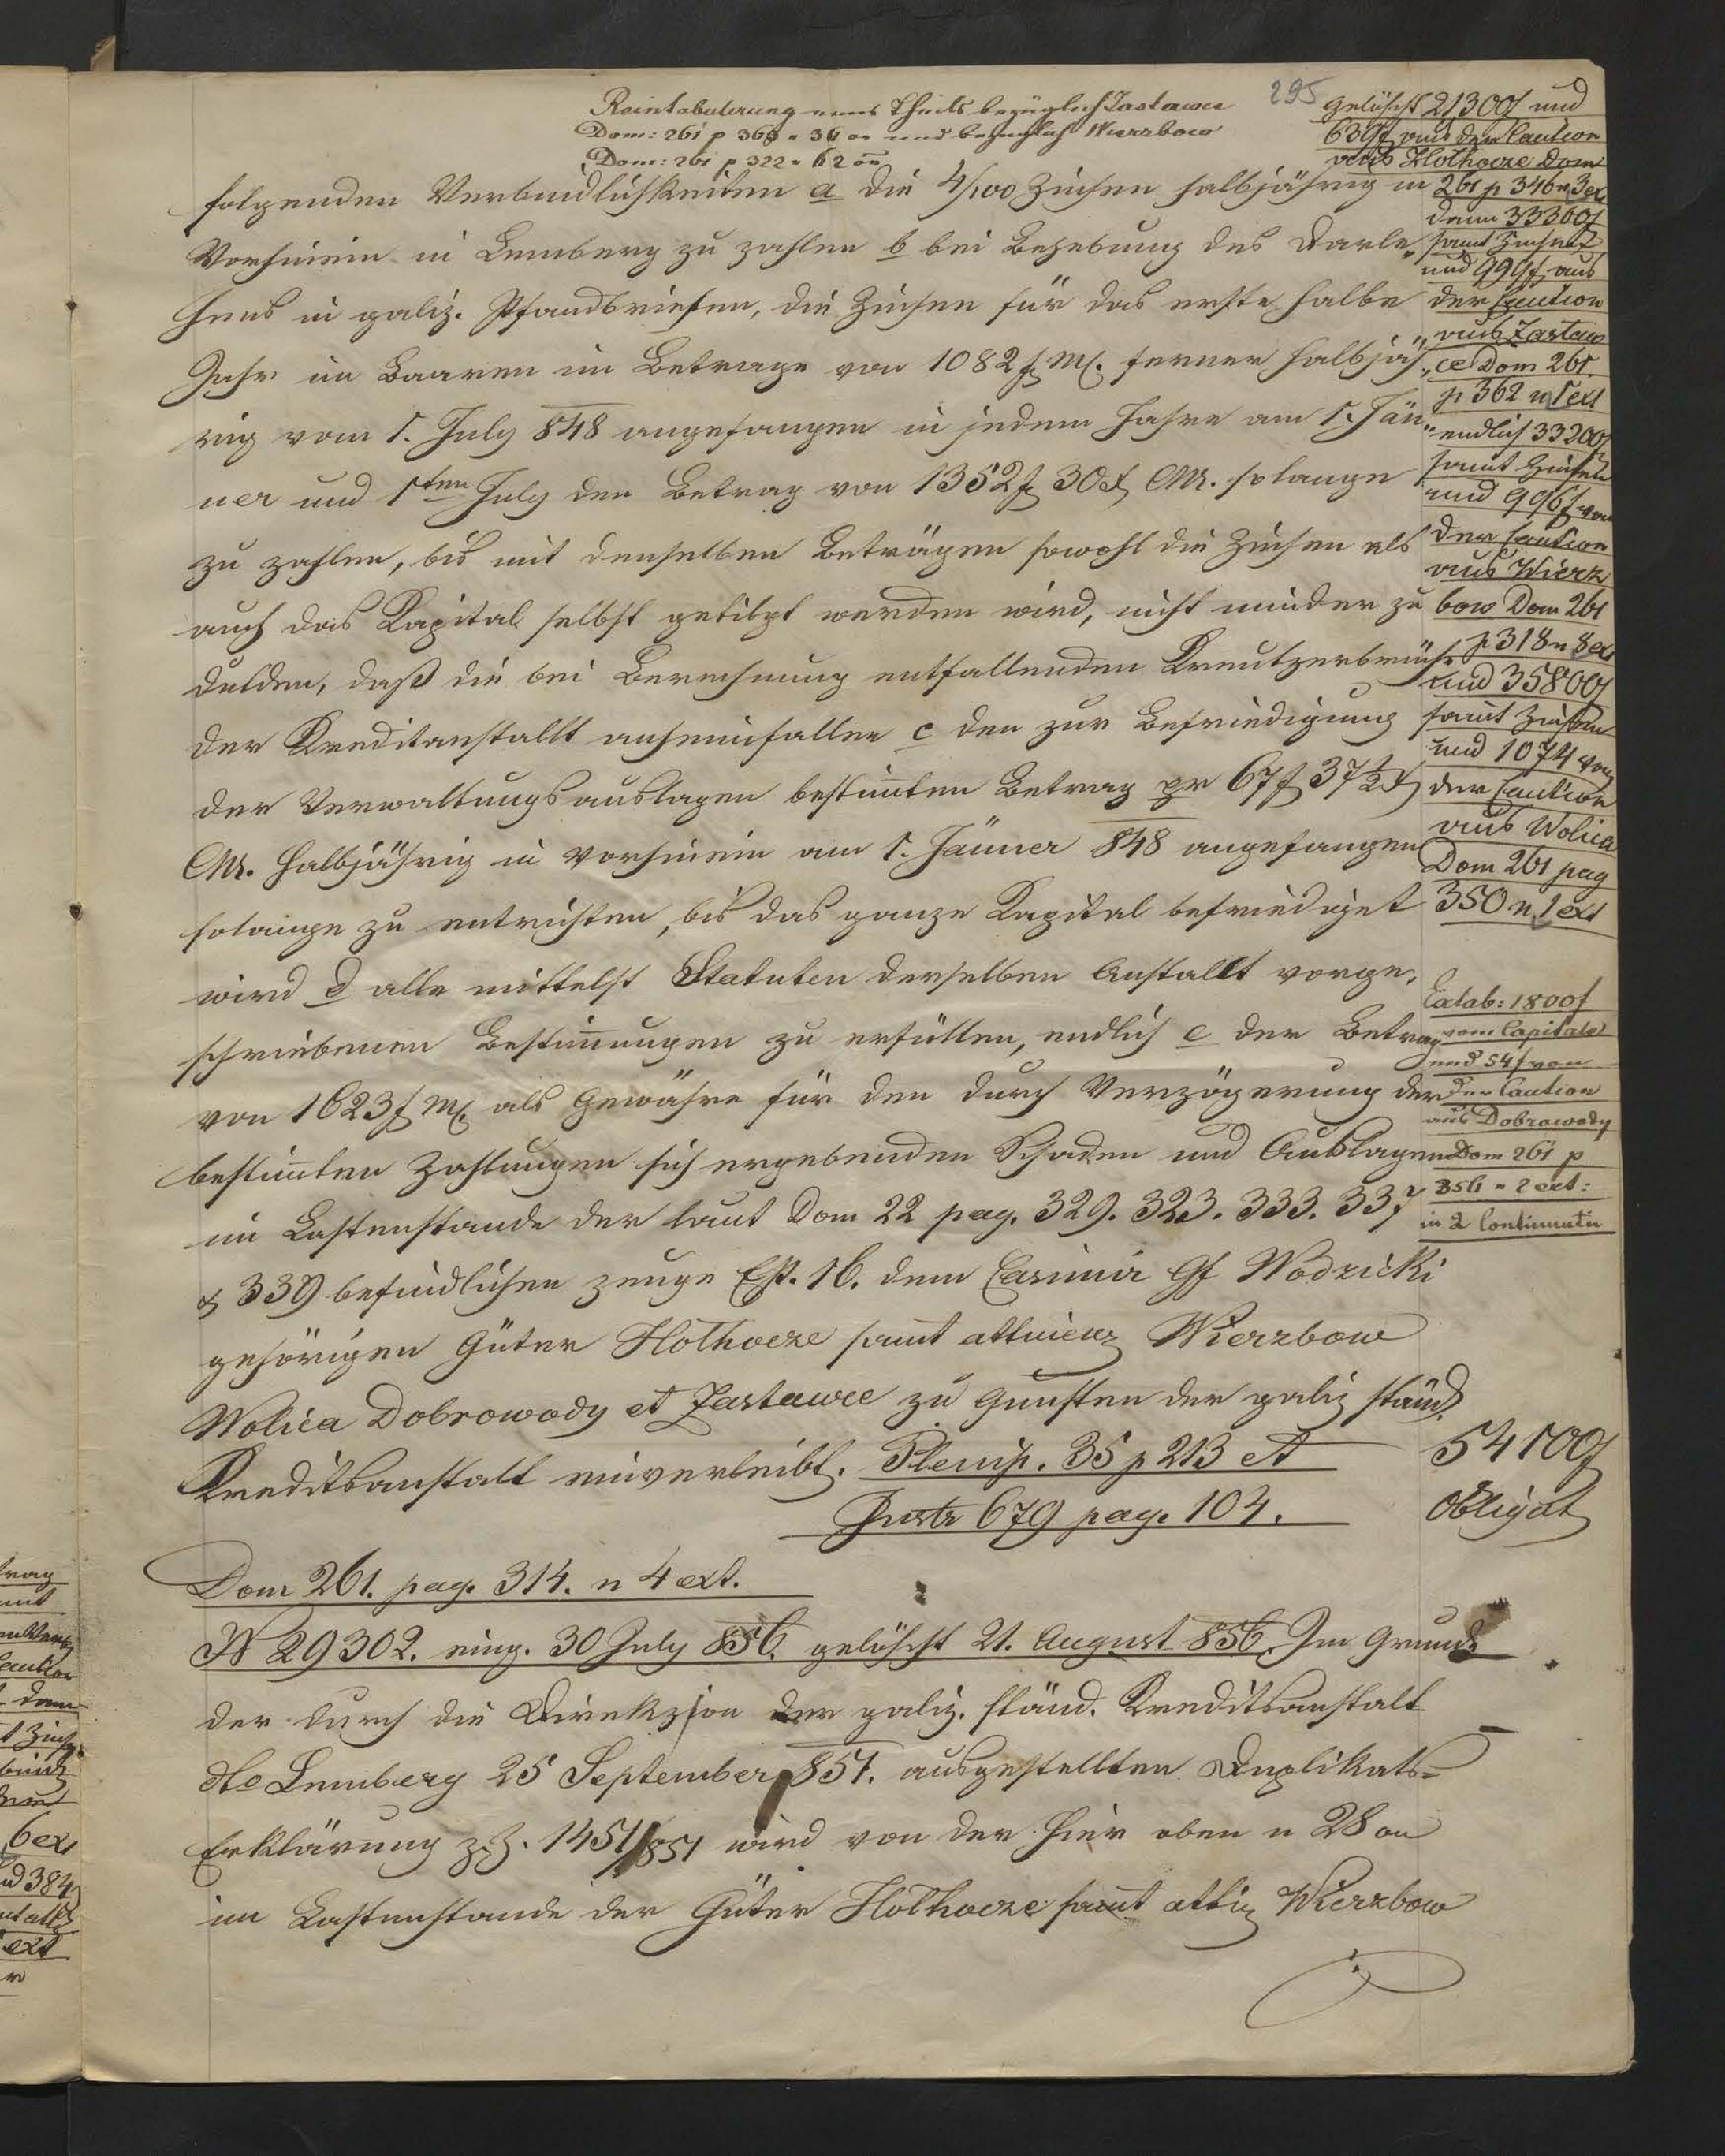 295
Reintabulerung eines Theils bezüglich Zastawce
Dom: 261 p 366 n 36 on und bezüglich Wierzbow
Dom: 261 p 322 n 62 on
folgenden Verbindlichkeiten a die 4/100 Zinsen halbjährig in
Vorhinein in Lemberg zu zahlen b bei Behebung des Darle„
hens in galiz. Pfandbriefen, die Zinsen für das erste halbe
Jahr im Baaren im Betrage von 1082 f M. ferner halbjäh„
rig vom 1. July 848 angefangen in jedem Jahre am 1. Jän„
ner und 1ten July den Betrag von 1352 f 30 x CM. solange
zu zahlen, bis mit denselben Beträgen sowohl die Zinsen als
auch das Kapital selbst getilgt werden wird, nicht minder zu
dulden, daß die bei Berechnung entfallenden Kreutzerbrüche
der Kreditanstallt anheimfallen c den zur Befriedigung
der Verwaltungsauslagen bestimten Betrag pr 67 f 37 1/2 x
CM. halbjährig in vorhinein am 1. Jänner 848 angefangen
solange zu entrichten, bis das ganze Kapital befriediget
wird d alle mittelst Statuten derselben Anstallt vorge„
schriebenen Bestimungen zu erfüllen, endlich e der Betrag
von 1623 f M als Gewähre für den durch Verzögerung der
bestimten Zahlungen sich ergebenden Schaden und Auslagen
im Lastenstande der laut Dom 22 pag. 329. 323. 333. 337
& 339 befindlichen zeuge Ep. 16. dem Casimir Gf Wodzicki
gehörigen Güter Hołhocze samt attinenz Wierzbow
Wolica Dobrowody et Zastawce zu Gunsten der galiz ständ.
Kreditsanstalt einverleibt. Plenip. 35 p 213 et
Instr 679 pag. 104.
54100 f
Obligat
Dom 261. pag. 314. n 4 ext.
N 29302. eing. 30 July 856. gelöscht 21. August 856. Im Grunde
der durch die Direkzion der galiz. ständ. Kreditsanstalt
dto Lemberg 25 September 851. ausgestellten Duplikats=
Erklärung z. Z. 1451/851 wird von der hier oben n 28 on
im Lastenstande der Güter Hołhocze samt attin Wierzbow
gelöscht 21300 f und
639 f von der Caution
aus Hołhocze Dom
261 p 346 n 3 ext
dann 33300 f
samt Zinsen
und 999 f aus
der Caution
aus Zastaw
ce Dom 261.
p 362 n 1 ext
endlich 33200 f
samt Zinsen
und 996 f von
der Caution
aus Wierz
bow Dom 261
p 318 n 8 ext
und 35800 f
samt Zinsen
und 1074 von
der Caution
aus Wolica
Dom 261 pag
350 n 1 ext
Extab: 1800 f
vom Capitale
und 54 f von
der Caution
aus Dobrowody
Dom 261 p
356 n 2 ext:
in 2 Continuatu
trag
Caution
Dom
6 ext
384
ext